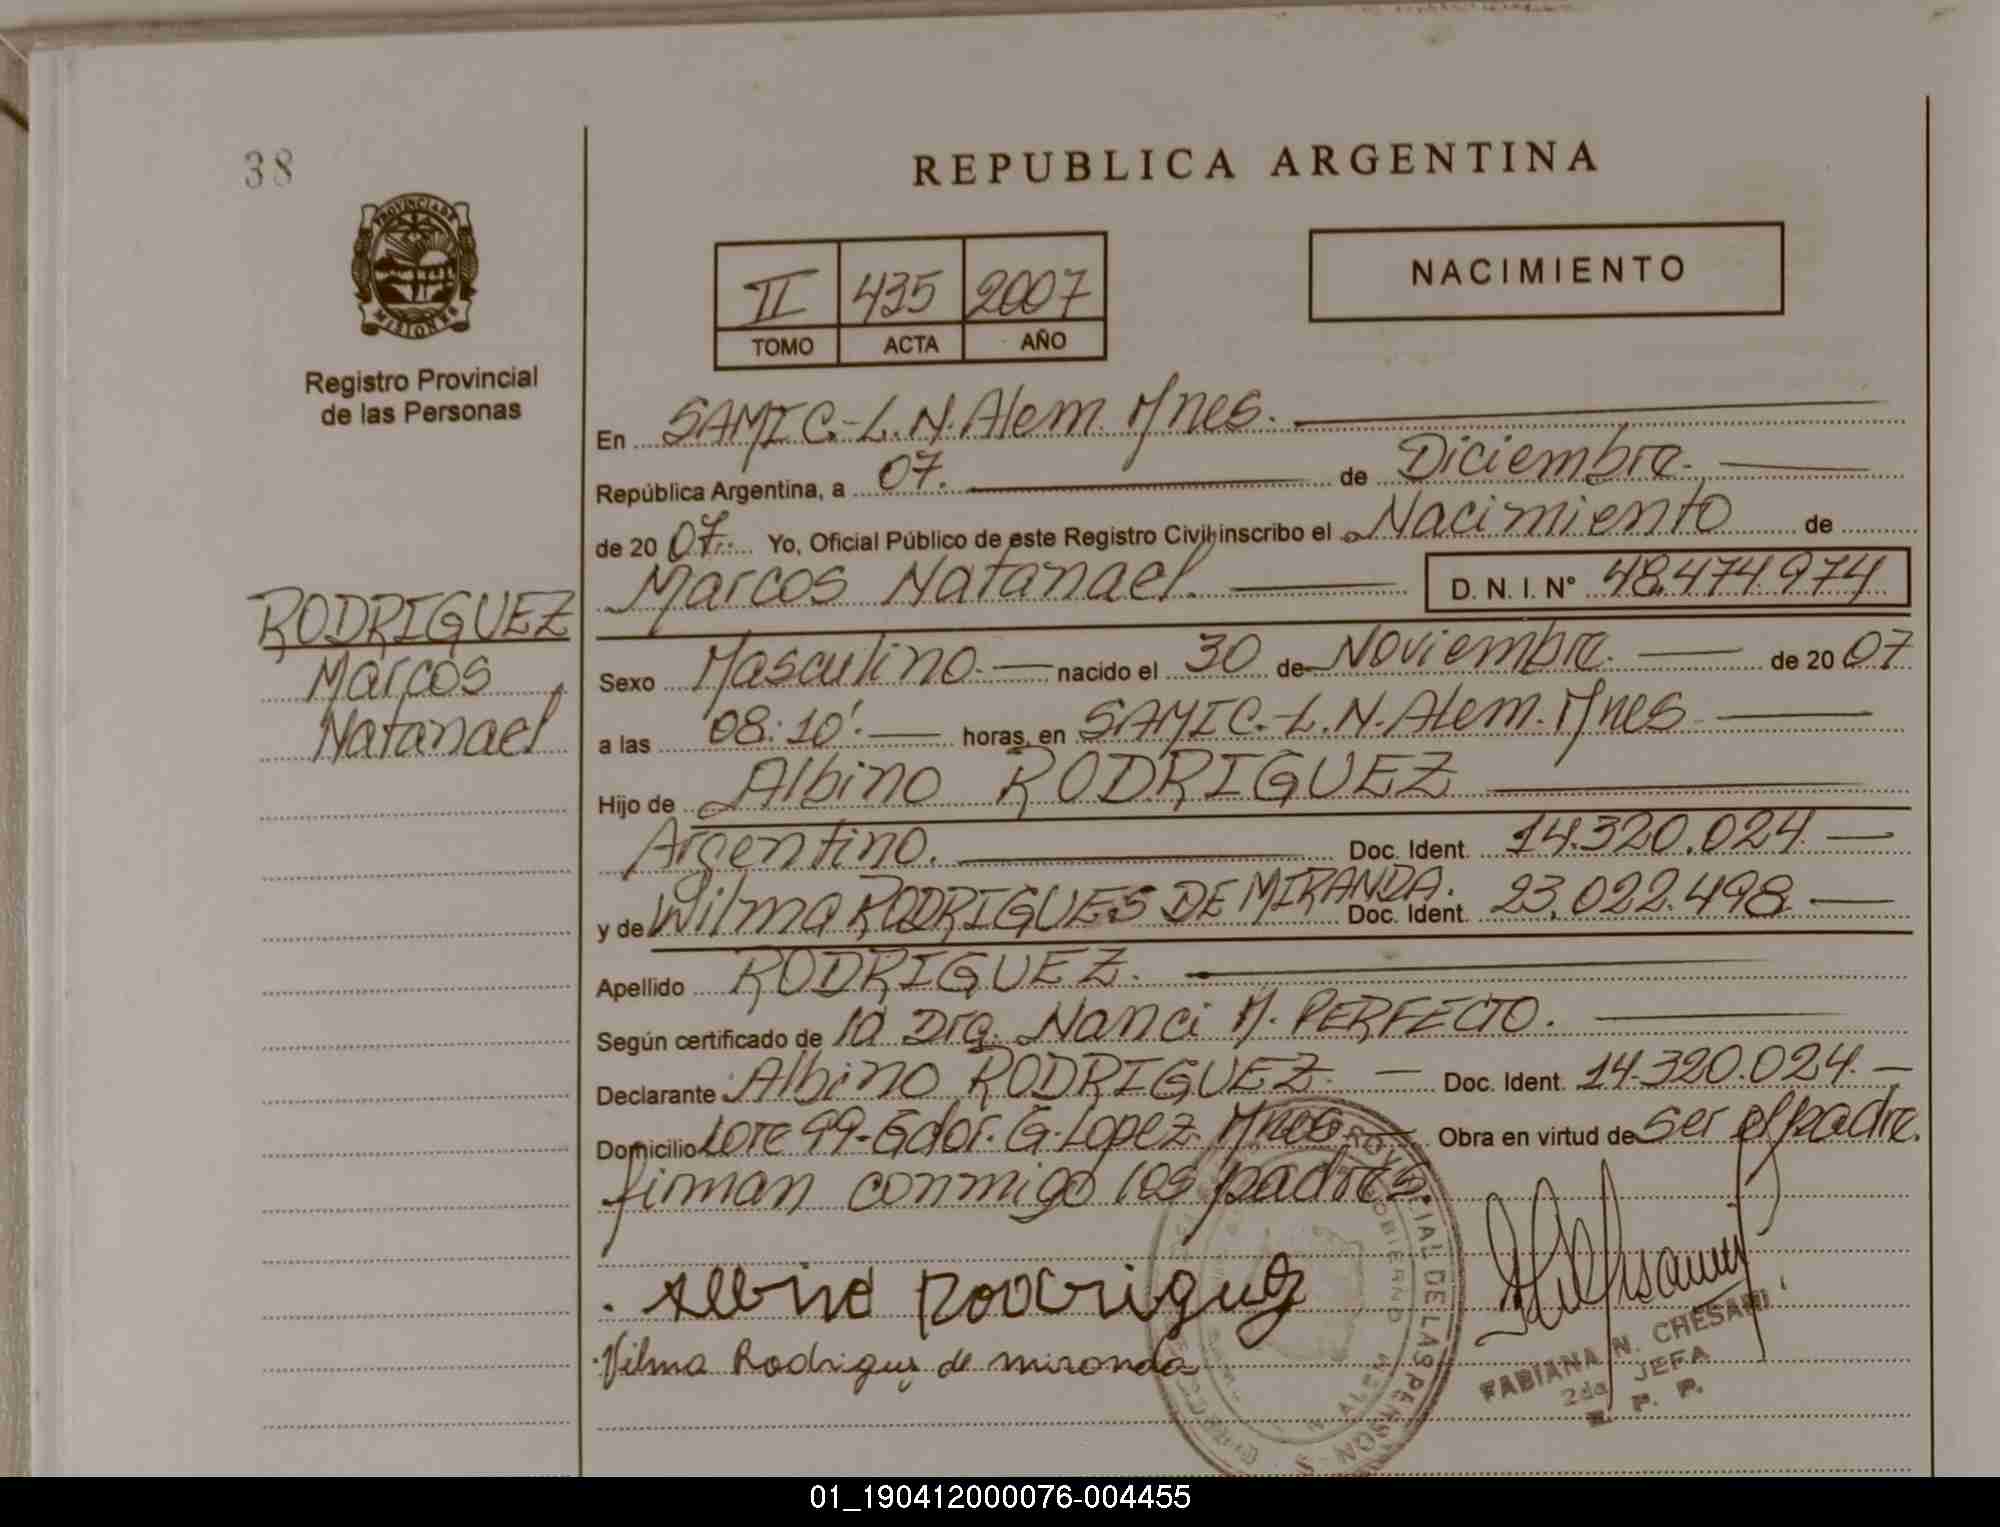 38
REPUBLICA ARGENTINA
PROVINCIA DE
MISIONES
Registro Provincial
de las Personas
II 435 2007
TOMO ACTA AÑO
NACIMIENTO
En SAMIC.-L.N.Alem. Mnes.
República Argentina, a 07. de Diciembre.
de 20 07. Yo, Oficial Público de este Registro Civil inscribo el Nacimiento de
Marcos Natanael. D. N. I. N° 48.474.974
RODRIGUEZ
Marcos
Natanael
Sexo Masculino. nacido el 30 de Noviembre. de 20 07
a las 08:10'. horas, en SAMIC.-L.N.Alem. Mnes
Hijo de Albino RODRIGUEZ
Argentino. Doc. Ident. 14.320.024.
y de Wilma RODRIGUES DE MIRANDA. Doc. Ident. 23.022.498.
Apellido RODRIGUEZ.
Según certificado de la Dra. Nanci M. PERFECTO.
Declarante Albino RODRIGUEZ. Doc. Ident. 14.320.024.
Domicilio Lote 99-Gdor. G. Lopez. Mnes. Obra en virtud de ser el padre.
firman conmigo los padres.
Albino Rodriguez
Vilma Rodrigues de miranda
FABIANA N. CHESANI
2da JEFA
R. P. P.
01_190412000076-004455